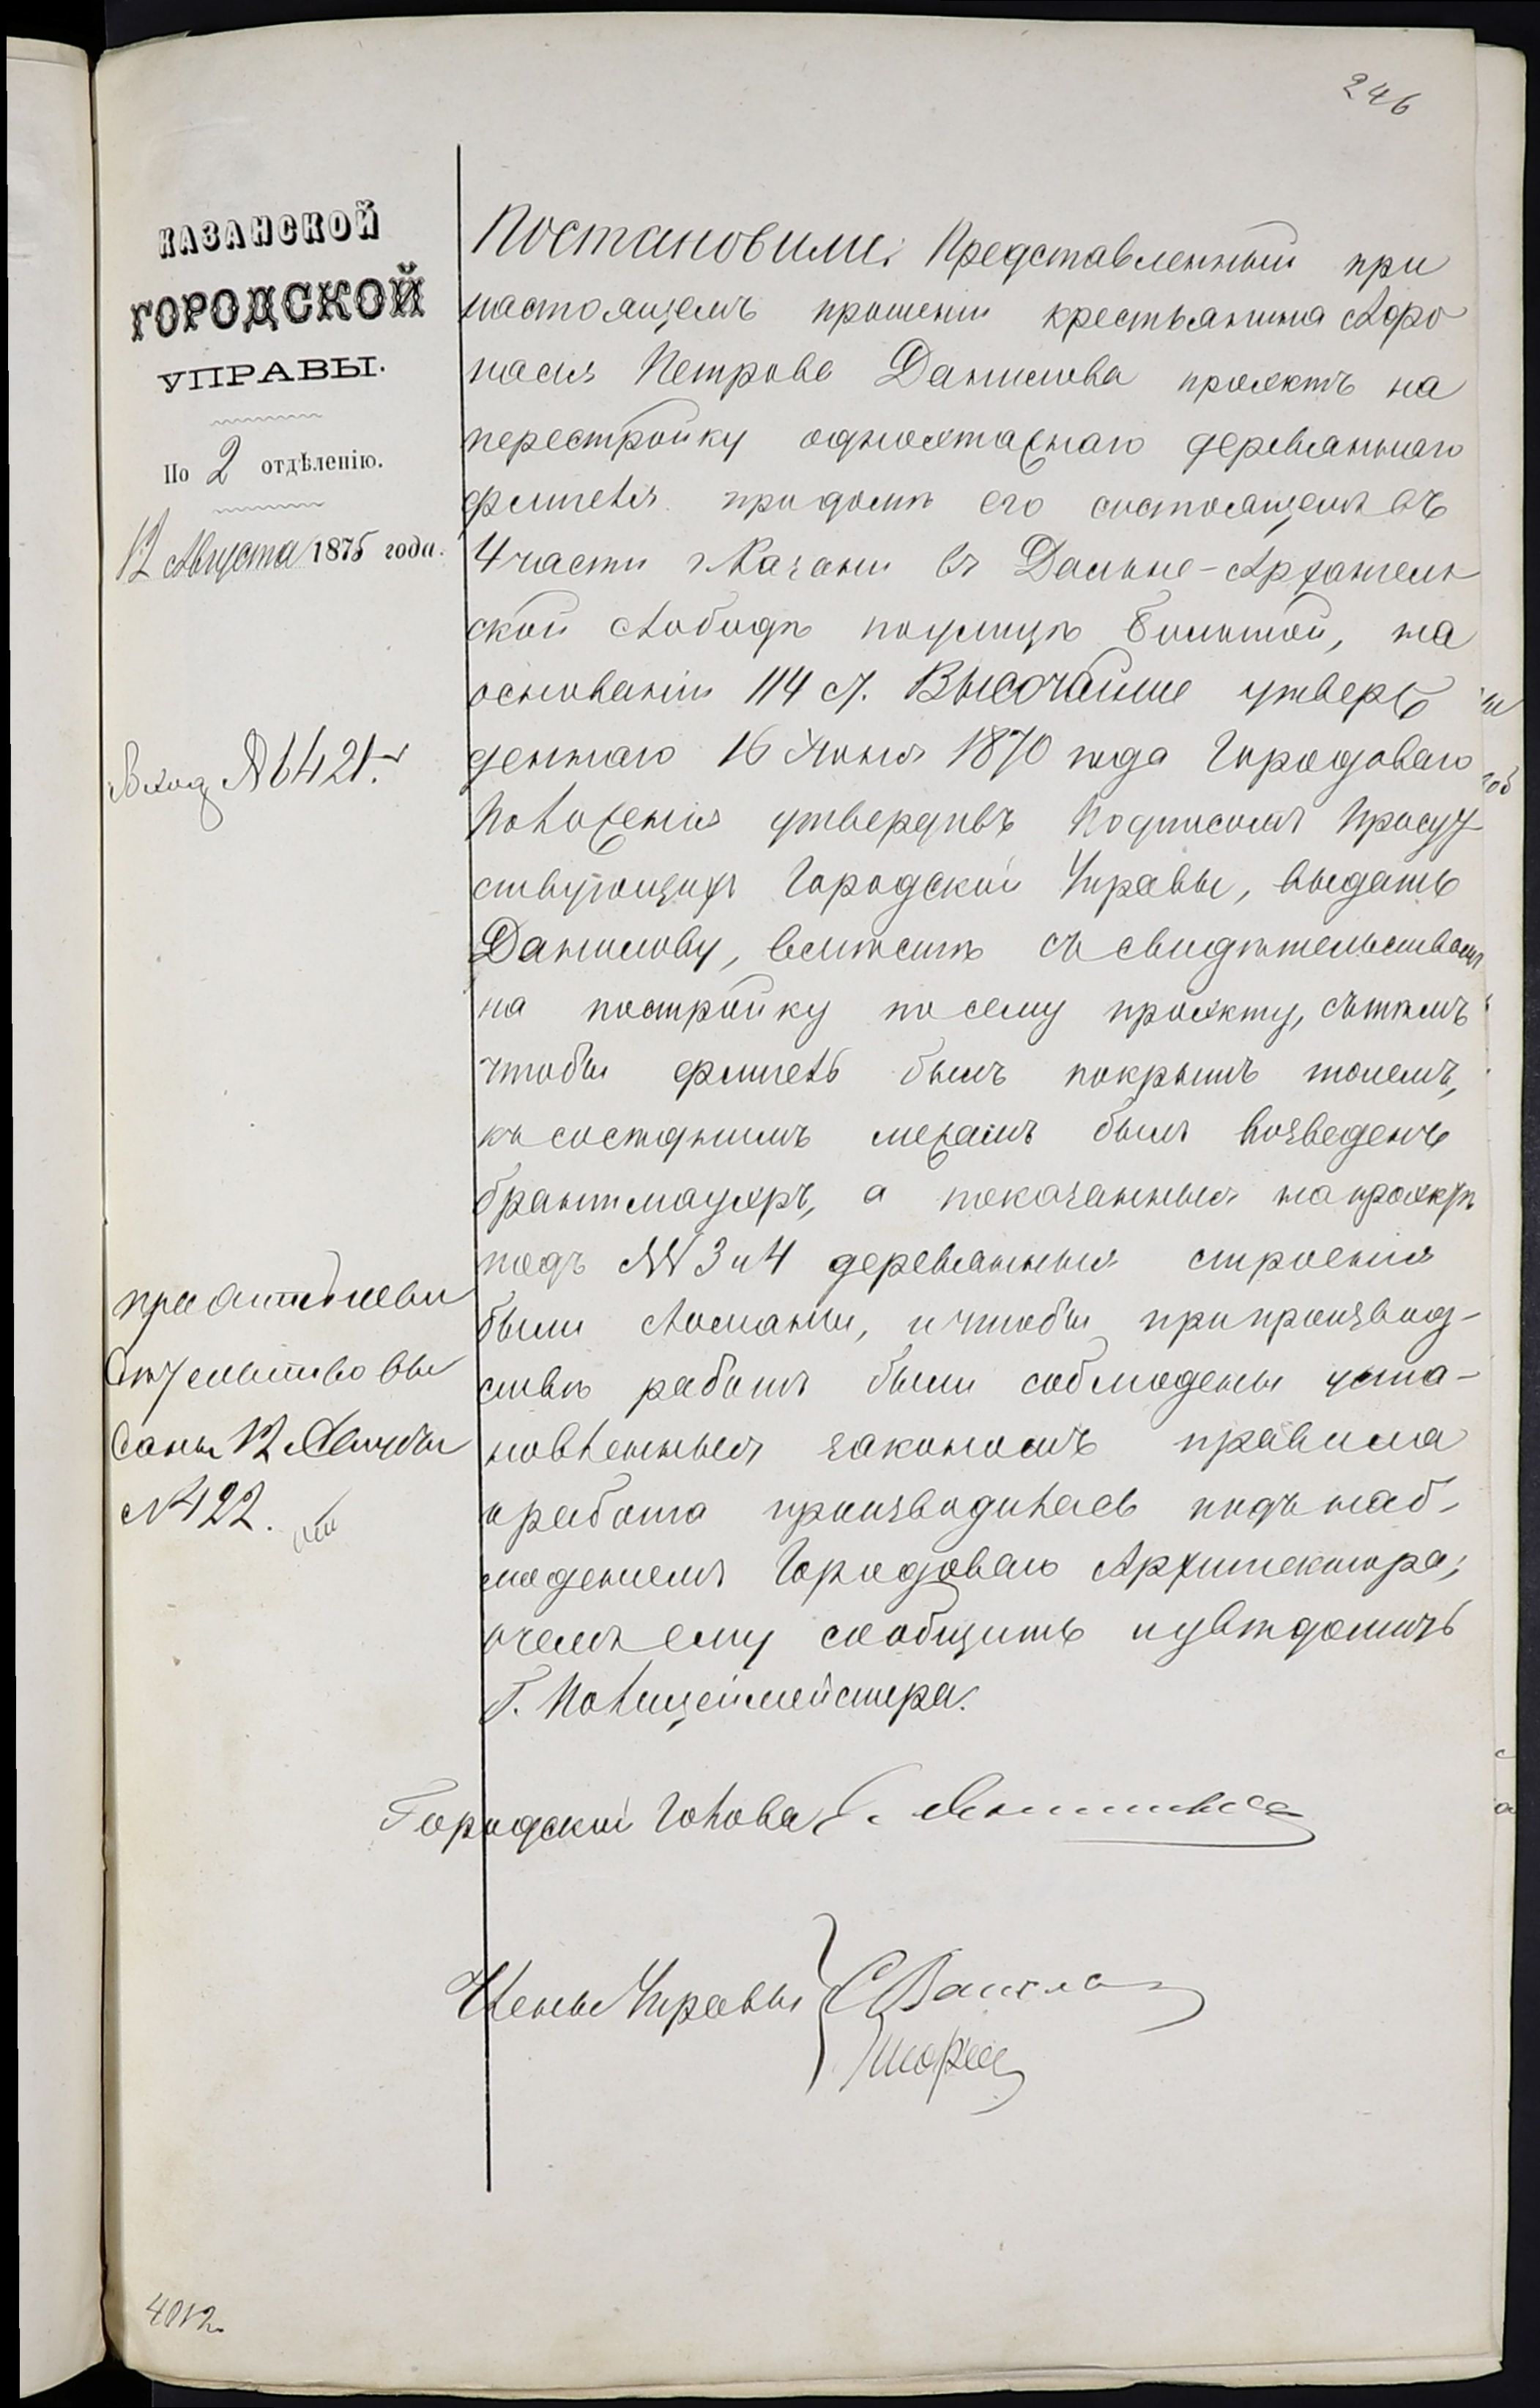 246
КАЗАНСКОЙ
ГОРОДСКОЙ
УПРАВЫ.
По 2 отдѣленію.
12 Августа 1875 года.
Вход № 6421.
Постановили: Представленный при
настоящемъ прошеніи крестьянина Афо
насія Петрова Данилова проэктъ на
перестройку одноэтажнаго деревяннаго
флигеля при домѣ его состоящемъ въ
4 части г. Казани въ Дальне-Архангель
ской слободѣ по улицѣ Большой, на
основаніи 114 ст. Высочайше утверж
деннаго 16 Іюня 1870 года Городоваго
Положенія утвердивъ подписомъ Присут
ствующихъ Городской Управы, выдать
Данилову, вмѣстѣ съ свидѣтельствомъ
на постройку по сему проэкту, съ тѣмъ
чтобы флигель былъ покрытъ толемъ,
къ сосѣднимъ межамъ былъ возведенъ
брантмауэръ, а показанныя на проэктѣ
подъ №№ 3 и 4 деревянныя строенія
были сломаны, и чтобы при производ-
ствѣ работъ были соблюдены уста-
новленныя закономъ правила
и работа производилась подъ наб-
люденіемъ Городоваго Архитектора;
о чемъ ему сообщить и увѣдомить
Г. Полицеймейстера.
выданы 12 Августа
№ 422.
Городской Голова
Члены Управы
4012